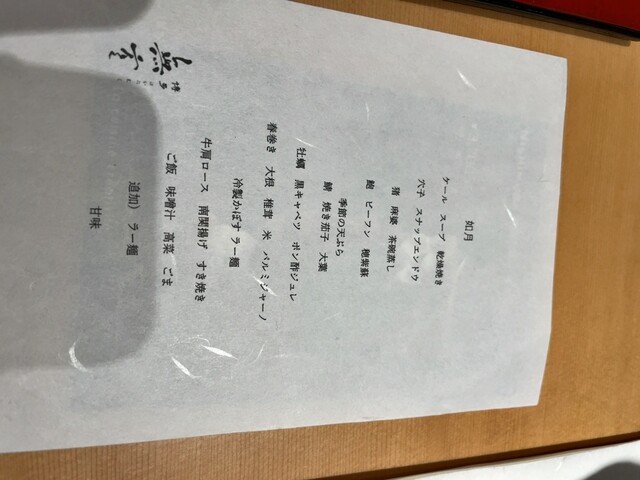 如月
ケール スープ 乾燥焼き
穴子 スナップエンドウ
猪 麻婆 茶碗蒸し
鮑 ビーフン 穂紫蘇
季節の天ぷら
鯖 焼き茄子 大葉
牡蠣 黒キャベツ ポン酢ジュレ
春巻き 大根 椎茸 米 パルミジャーノ
冷製かぼす ラー麺
牛肩ロース 南関揚げ すき焼き
ご飯 味噌汁 高菜 ごま
追加） ラー麺
甘味
博多